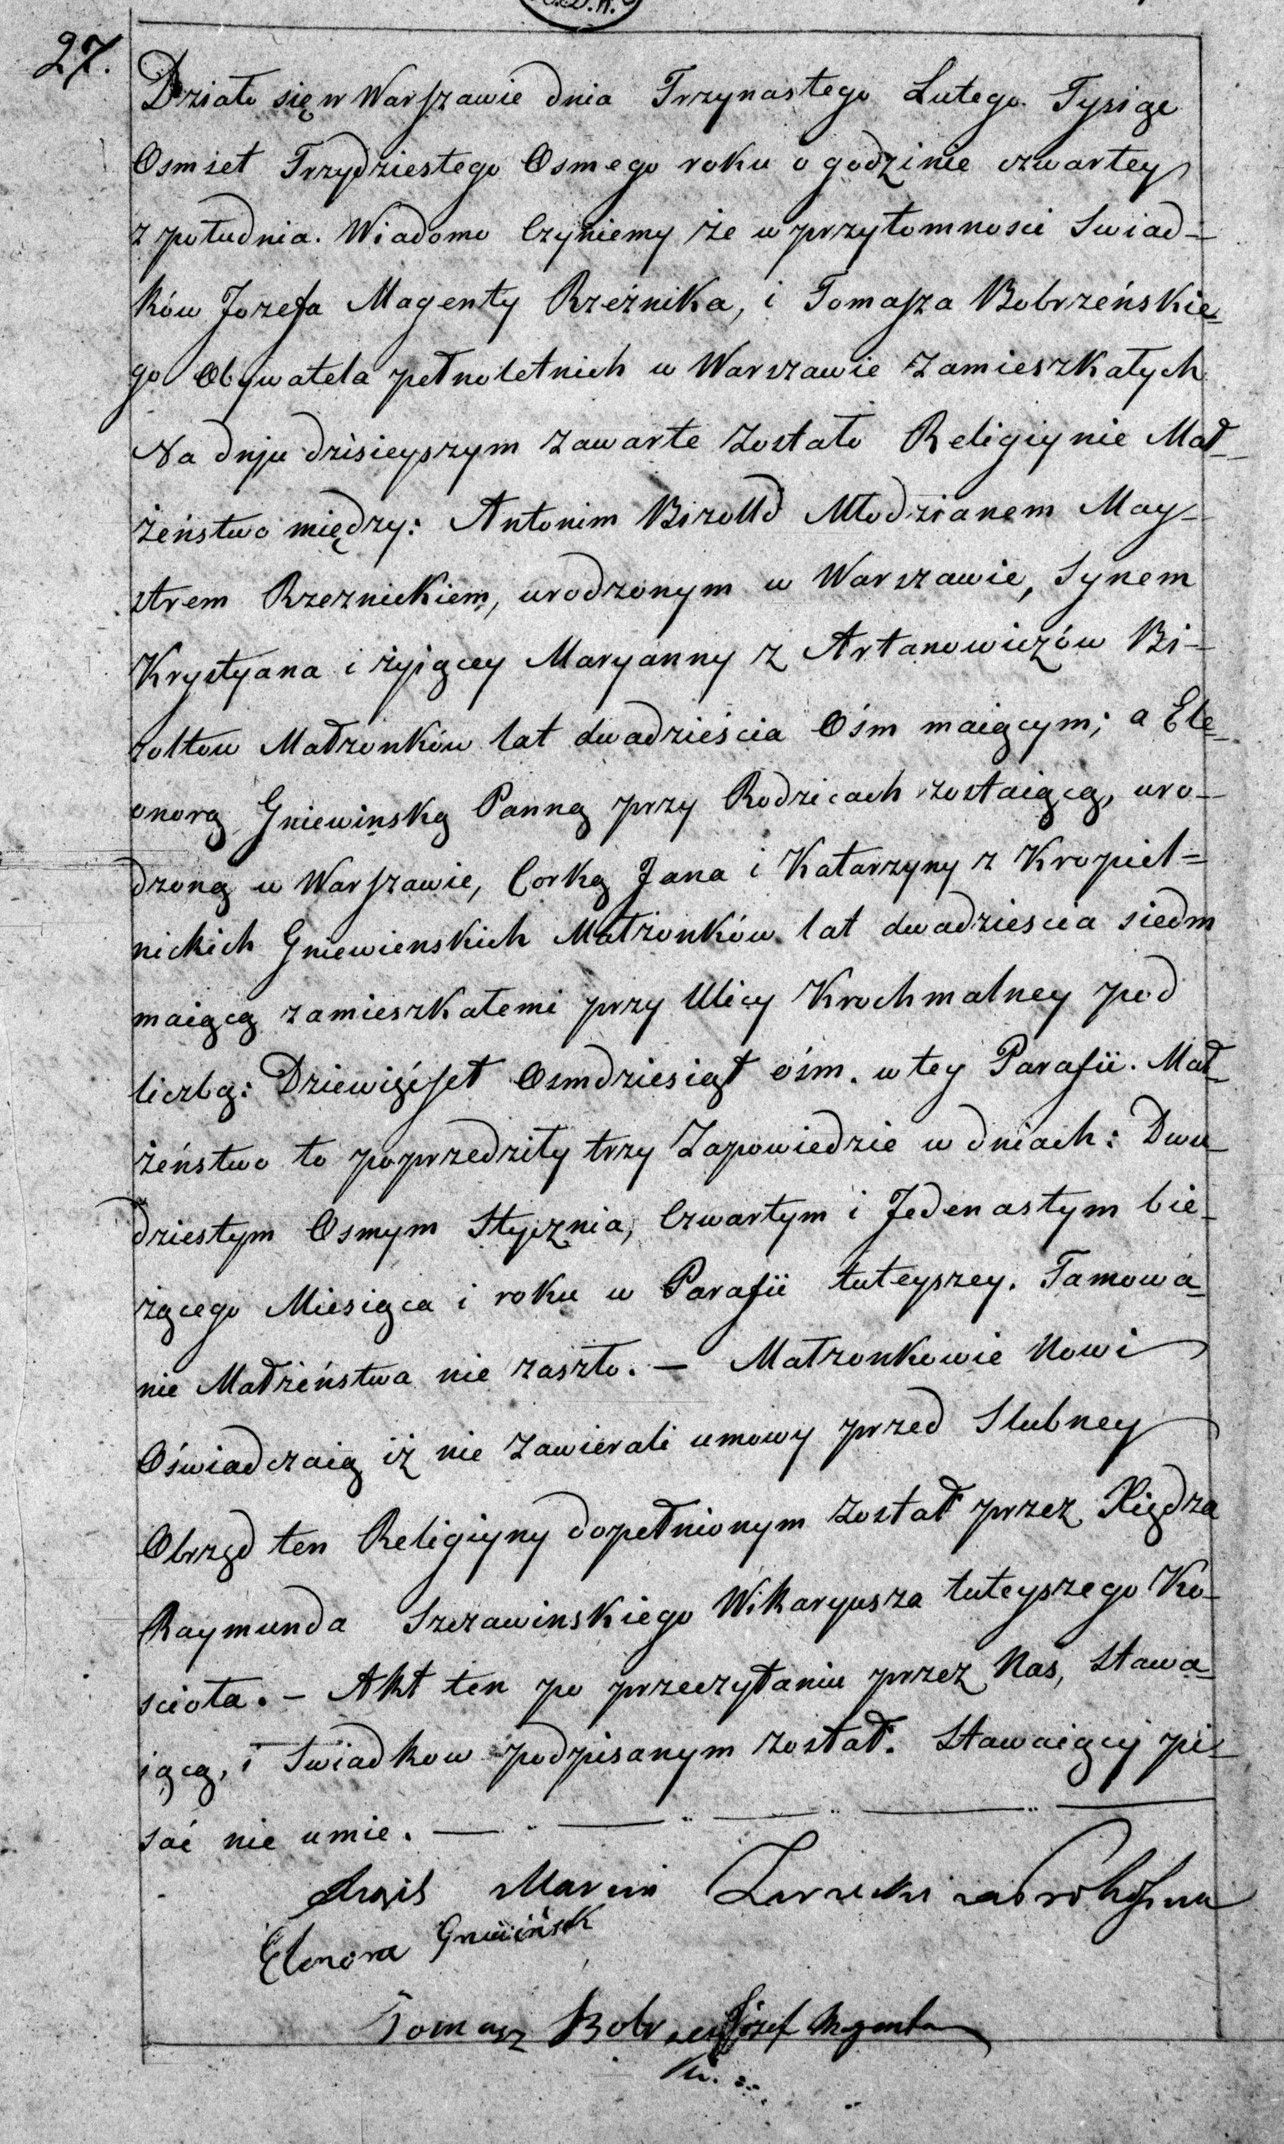 27.
Działo się w Warszawie dnia Trzynastego Lutego Tysiąc
Osmset Trzydziestego Osmego roku o godzinie czwartey
z południa. Wiadomo Czyniemy że w przytomnosci Swiad-
ków Jozefa Magenty Rzeźnika, i Tomasza Bobrzeńskie-
go Obywatela pełnoletnich w Warszawie zamieszkałych
Na dniu dzisieyszym zawarte zostało Religiynie Mał-
żeństwo między: Antonim Birolld Młodzianem May-
strem Rzeznickiem, urodzonym w Warszawie, Synem
Krystyana i żyiącey Maryanny z Artanowiczów Bi-
roltow Małżonków lat dwadzieścia Ośm maiącym; a Ele-
onorą Gniewinską Panną przy Rodzicach zostaiącą, uro-
dzoną w Warszawie, Corką Jana i Katarzyny z Kropiel-
nickich Gniewienskich Małżonków lat dwadziescia siedm
maiącą zamieszkałemi przy Ulicy Krochmalney pod
liczbą: Dziewięćset Osmdziesiąt óśm. w tey Parafii. Mał-
żeństwo to poprzedziły trzy Zapowiedzie w dniach: Dwu-
dziestym Osmym Stycznia, Czwartym i Jedenastym bie-
żącego Miesiąca i roku w Parafii tuteyszey. Tamowa-
nie Małżeństwa nie zaszło. — Małżonkowie Nowi
Oświadczaią iż nie zawierali umowy przed Slubney
Obrząd ten Religiyny dopełnionym został przez Xiędza
Raymunda Szczawinskiego Wikaryusza tuteyszego Ko-
scioła. - Akt ten po przeczytaniu przez Nas, Stawa-
iącą, i Swiadkow podpisanym został. Stawaiący pi-
sać nie umie.
Marcin
Elonora Gniwińsk
Tomasz Józef Magenta